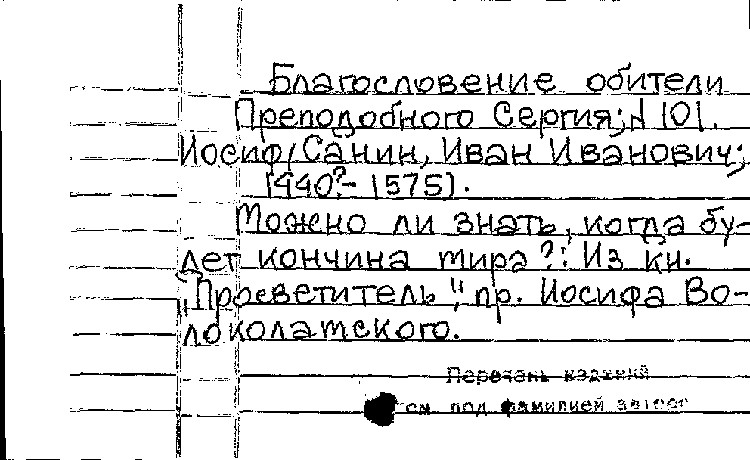 Благословение обители
Преподобного Сергия; N 101.
Иосиф (Санин, Иван Иванович;
1440?- 1575).
Можно ли знать, когда бу-
дет кончина мира?: Из кн.
„Просветитель", пр. Иосифа Во-
локоламского.
Перечень изданий
см. под фамилией автора